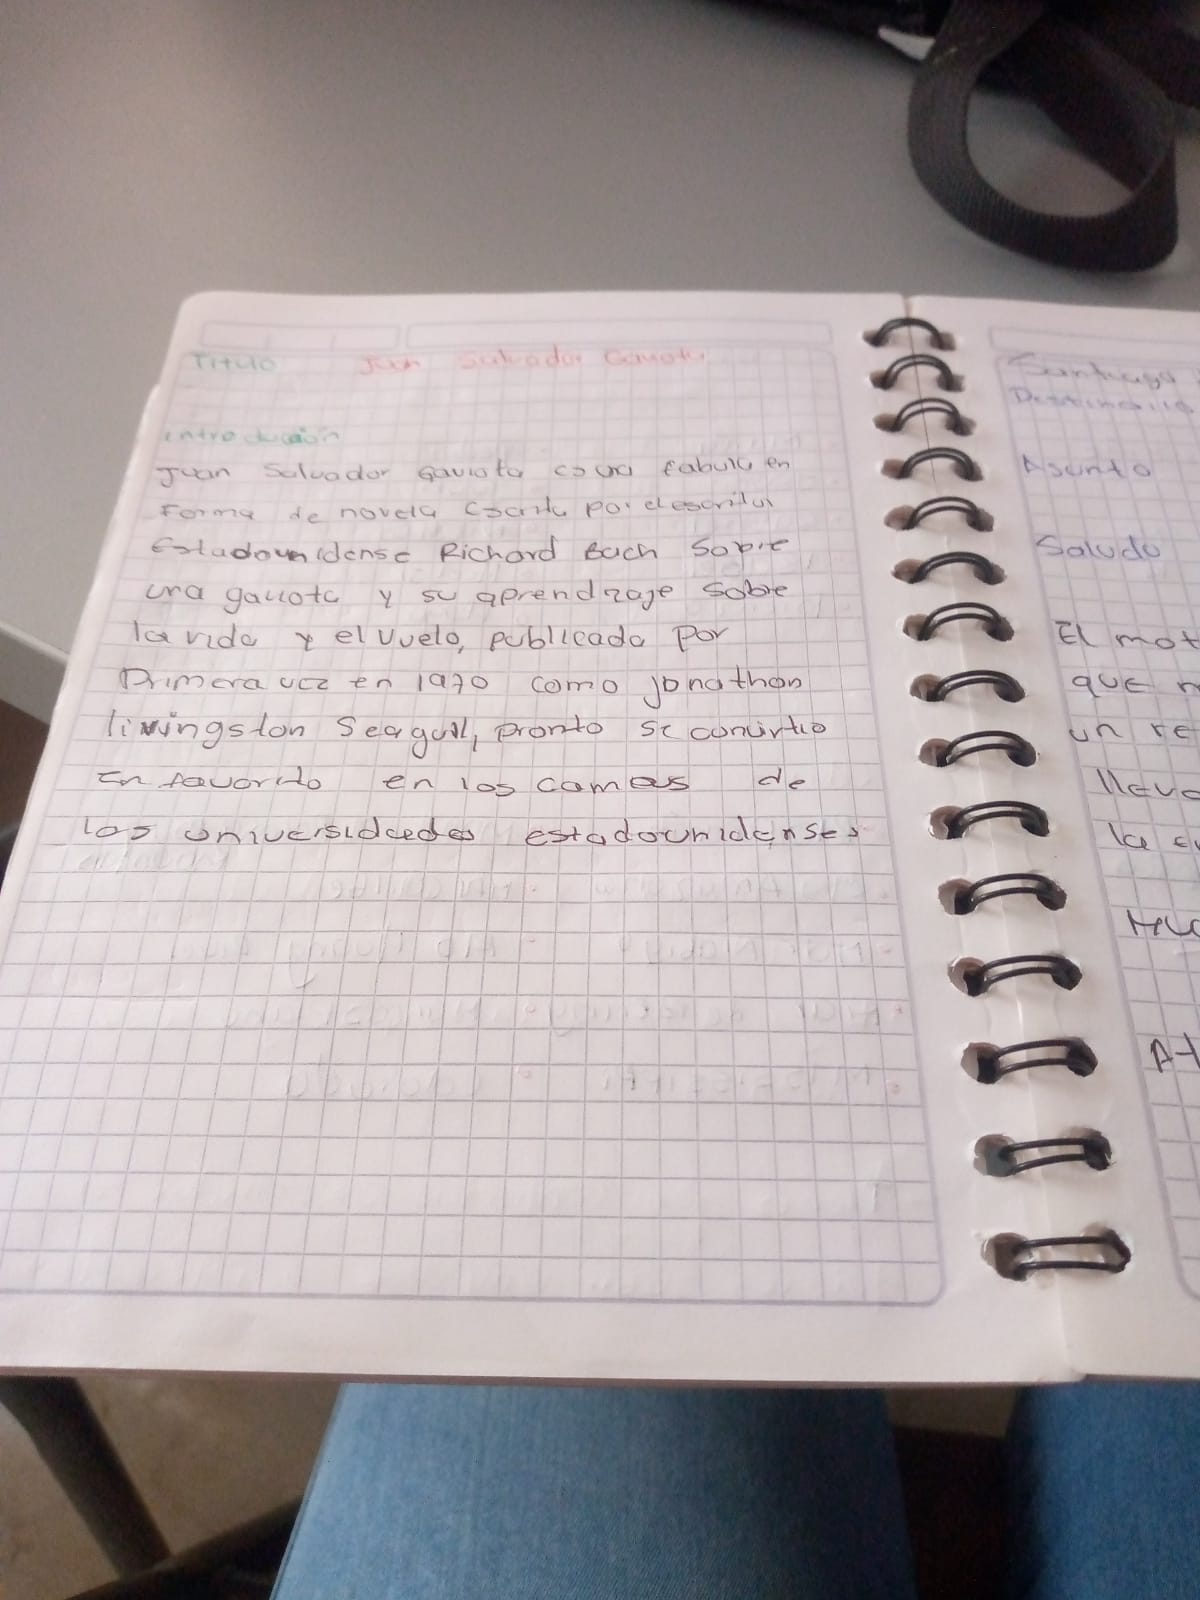 Titulo Juan Salvador Gaviota
introducción
Juan Salvador Gaviota es una fabula en
forma de novela Escrita por el escritor
Estadounidense Richard Bach Sobre
una gaviota y su aprendizaje sobre
la vida y el vuelo, publicada por
Primera vez en 1970 como jonathon
livingston Seagull, pronto se convirtio
En favorito en los campus de
las universidades estadounidenses
Santiago
Asunto
Saludo
El mot
que n
un re
lleva
la